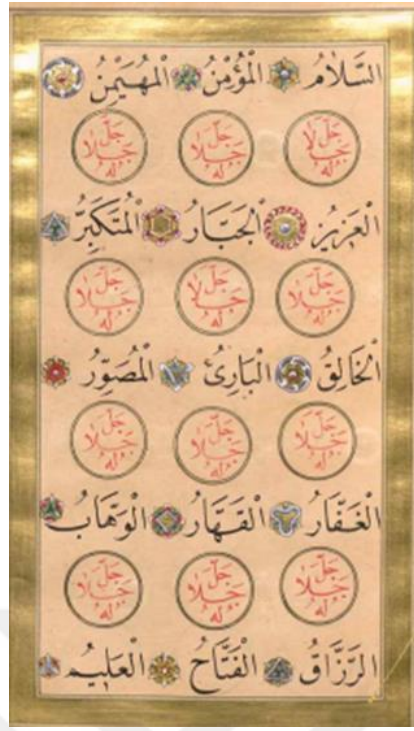 السَّلَامُ الْمُؤْمِنُ الْمُهَيْمِنُ
جَلَّ جَلَالُهُ جَلَّ جَلَالُهُ جَلَّ جَلَالُهُ
الْعَزِيزُ الْجَبَّارُ الْمُتَكَبِّرُ
جَلَّ جَلَالُهُ جَلَّ جَلَالُهُ جَلَّ جَلَالُهُ
الْخَالِقُ الْبَارِئُ الْمُصَوِّرُ
جَلَّ جَلَالُهُ جَلَّ جَلَالُهُ جَلَّ جَلَالُهُ
الْغَفَّارُ الْقَهَّارُ الْوَهَّابُ
جَلَّ جَلَالُهُ جَلَّ جَلَالُهُ جَلَّ جَلَالُهُ
الرَّزَّاقُ الْفَتَّاحُ الْعَلِيمُ